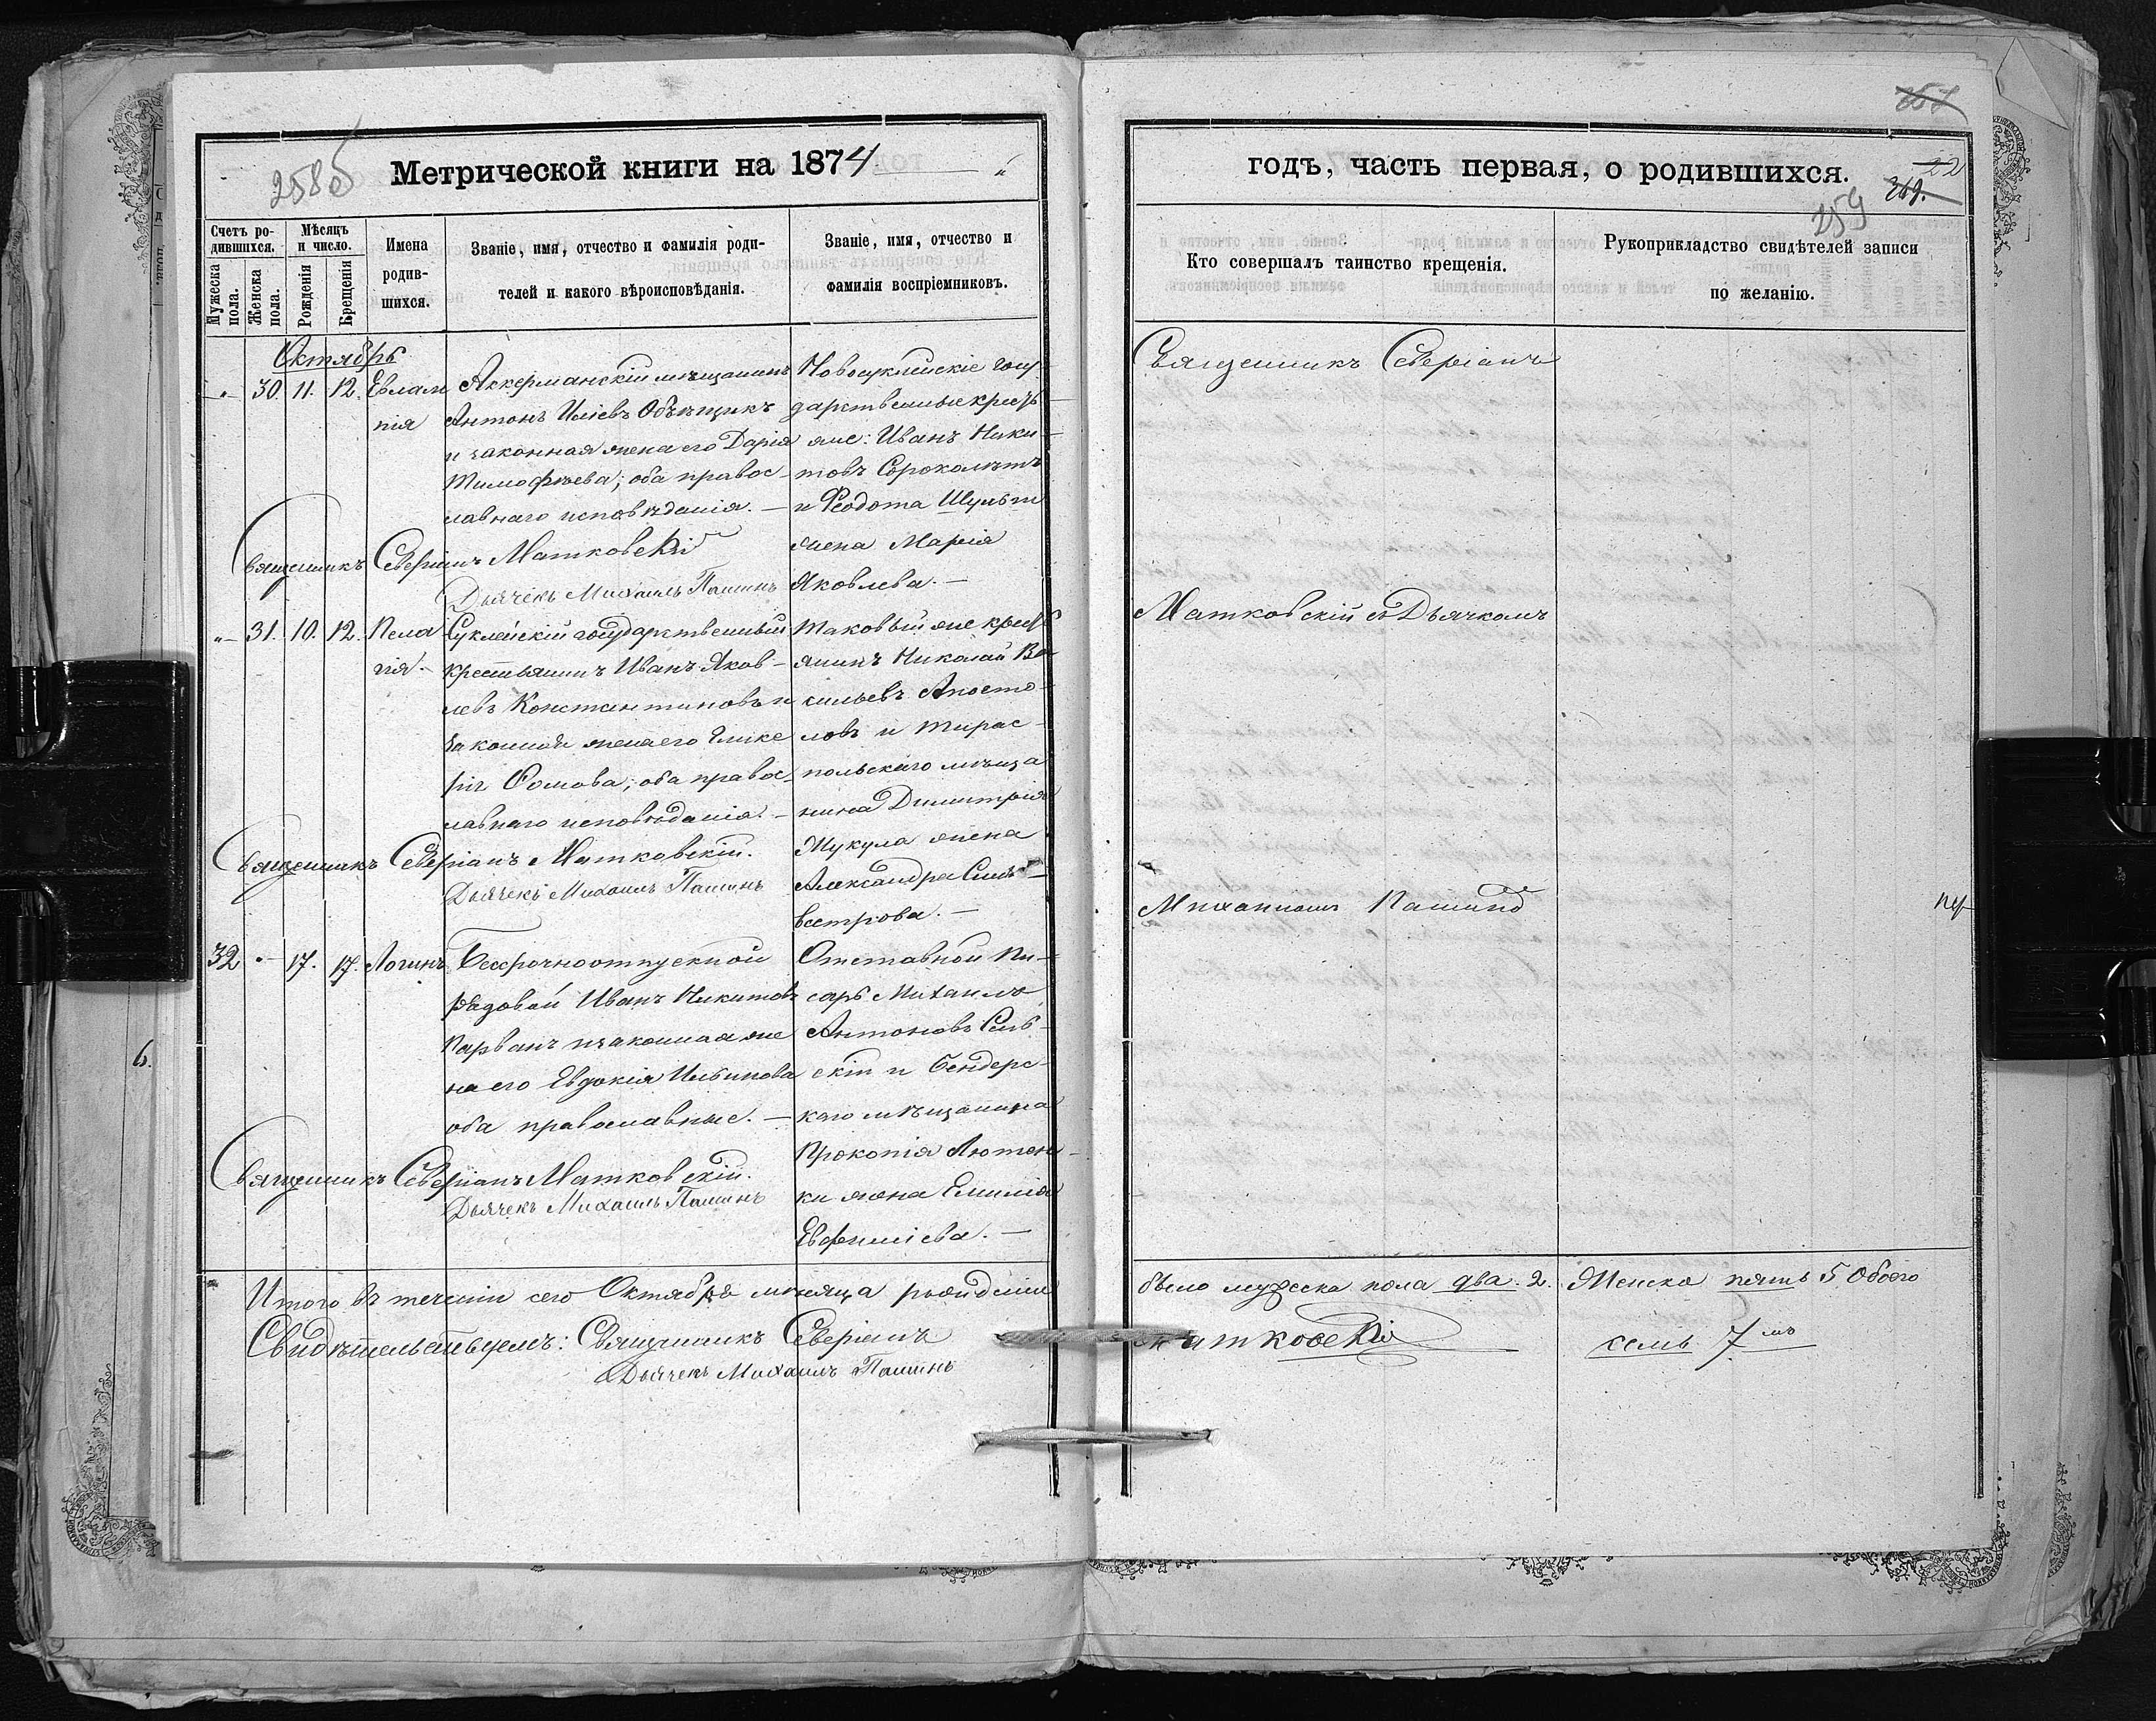 258 об
Метрической книги на 1874
Счетъ ро-
дившихся.
Мужеска
пола.
Женска
пола.
Мѣсяцъ
и число.
Рожденія
Крещенія
Имена
родив-
шихся.
Званіе, имя, отчество и фамилія роди-
телей и какого вѣроисповѣданія.
Званіе, имя, отчество и
фамилія воспріемниковъ.
Октябрь
30. 11. 12. Евлам
пія
Аккерманскій мѣщанинъ
Антонъ Иліевъ Объѣщикъ
и законная жена его Дарія
Тимофѣева; оба правос-
лавнаго исповѣданія. —
Новосуклейскіе госу-
дарственные кресть-
яне: Иванъ Ники-
товъ Сороколѣтъ
и Феодота
жена Марія
Яковлева. —
Священникъ Северіанъ Матковскій
Дьячекъ Михаилъ Пашинъ
31. 10. 12. Пела
гія.
Суклейскій государственный
крестьянинъ Иванъ Яков-
левъ Константиновъ и
законная жена его Глике
рія Фомова; оба правос-
лавнаго исповѣданія. —
Таковый же кресть
янинъ Николай Ва-
сильевъ Апосто-
ловъ и Тирас-
польскаго мѣща
нина Димитрія
Мукула жена
Александра Силь-
вестрова. —
Священникъ Северіанъ Матковскій.
Дьячекъ Михаилъ Пашинъ
32 17. 17. Логинъ
Безсрочноотпускной
рядовой Иванъ Никитовъ
Парванъ и законная же
на его Евдокія
оба православные. —
Отставной Пи-
сарь Михаилъ
Антоновъ
и Бендерс-
каго мѣщанина
Прокопія Лютен-
ки жена Емилія
Евфиміева. —
Священникъ Северіанъ Матковскій.
Дьячекъ Михаилъ Пашинъ
Итого въ теченіи сего Октября мѣсяца рожденія
Свидѣтельствуемъ: Священникъ Северіанъ
Дьячекъ Михаилъ Пашинъ
6.
годъ, часть первая, о родившихся.
22
259
Кто совершалъ таинство крещенія.
Рукоприкладство свидѣтелей записи
по желанію.
Священникъ Северіанъ
Матковскій съ Дьячкомъ
Михаиломъ Пашинъ
было мужеска пола два. 2. Женска пять 5 Обоего
Матковскій
семь 7мъ